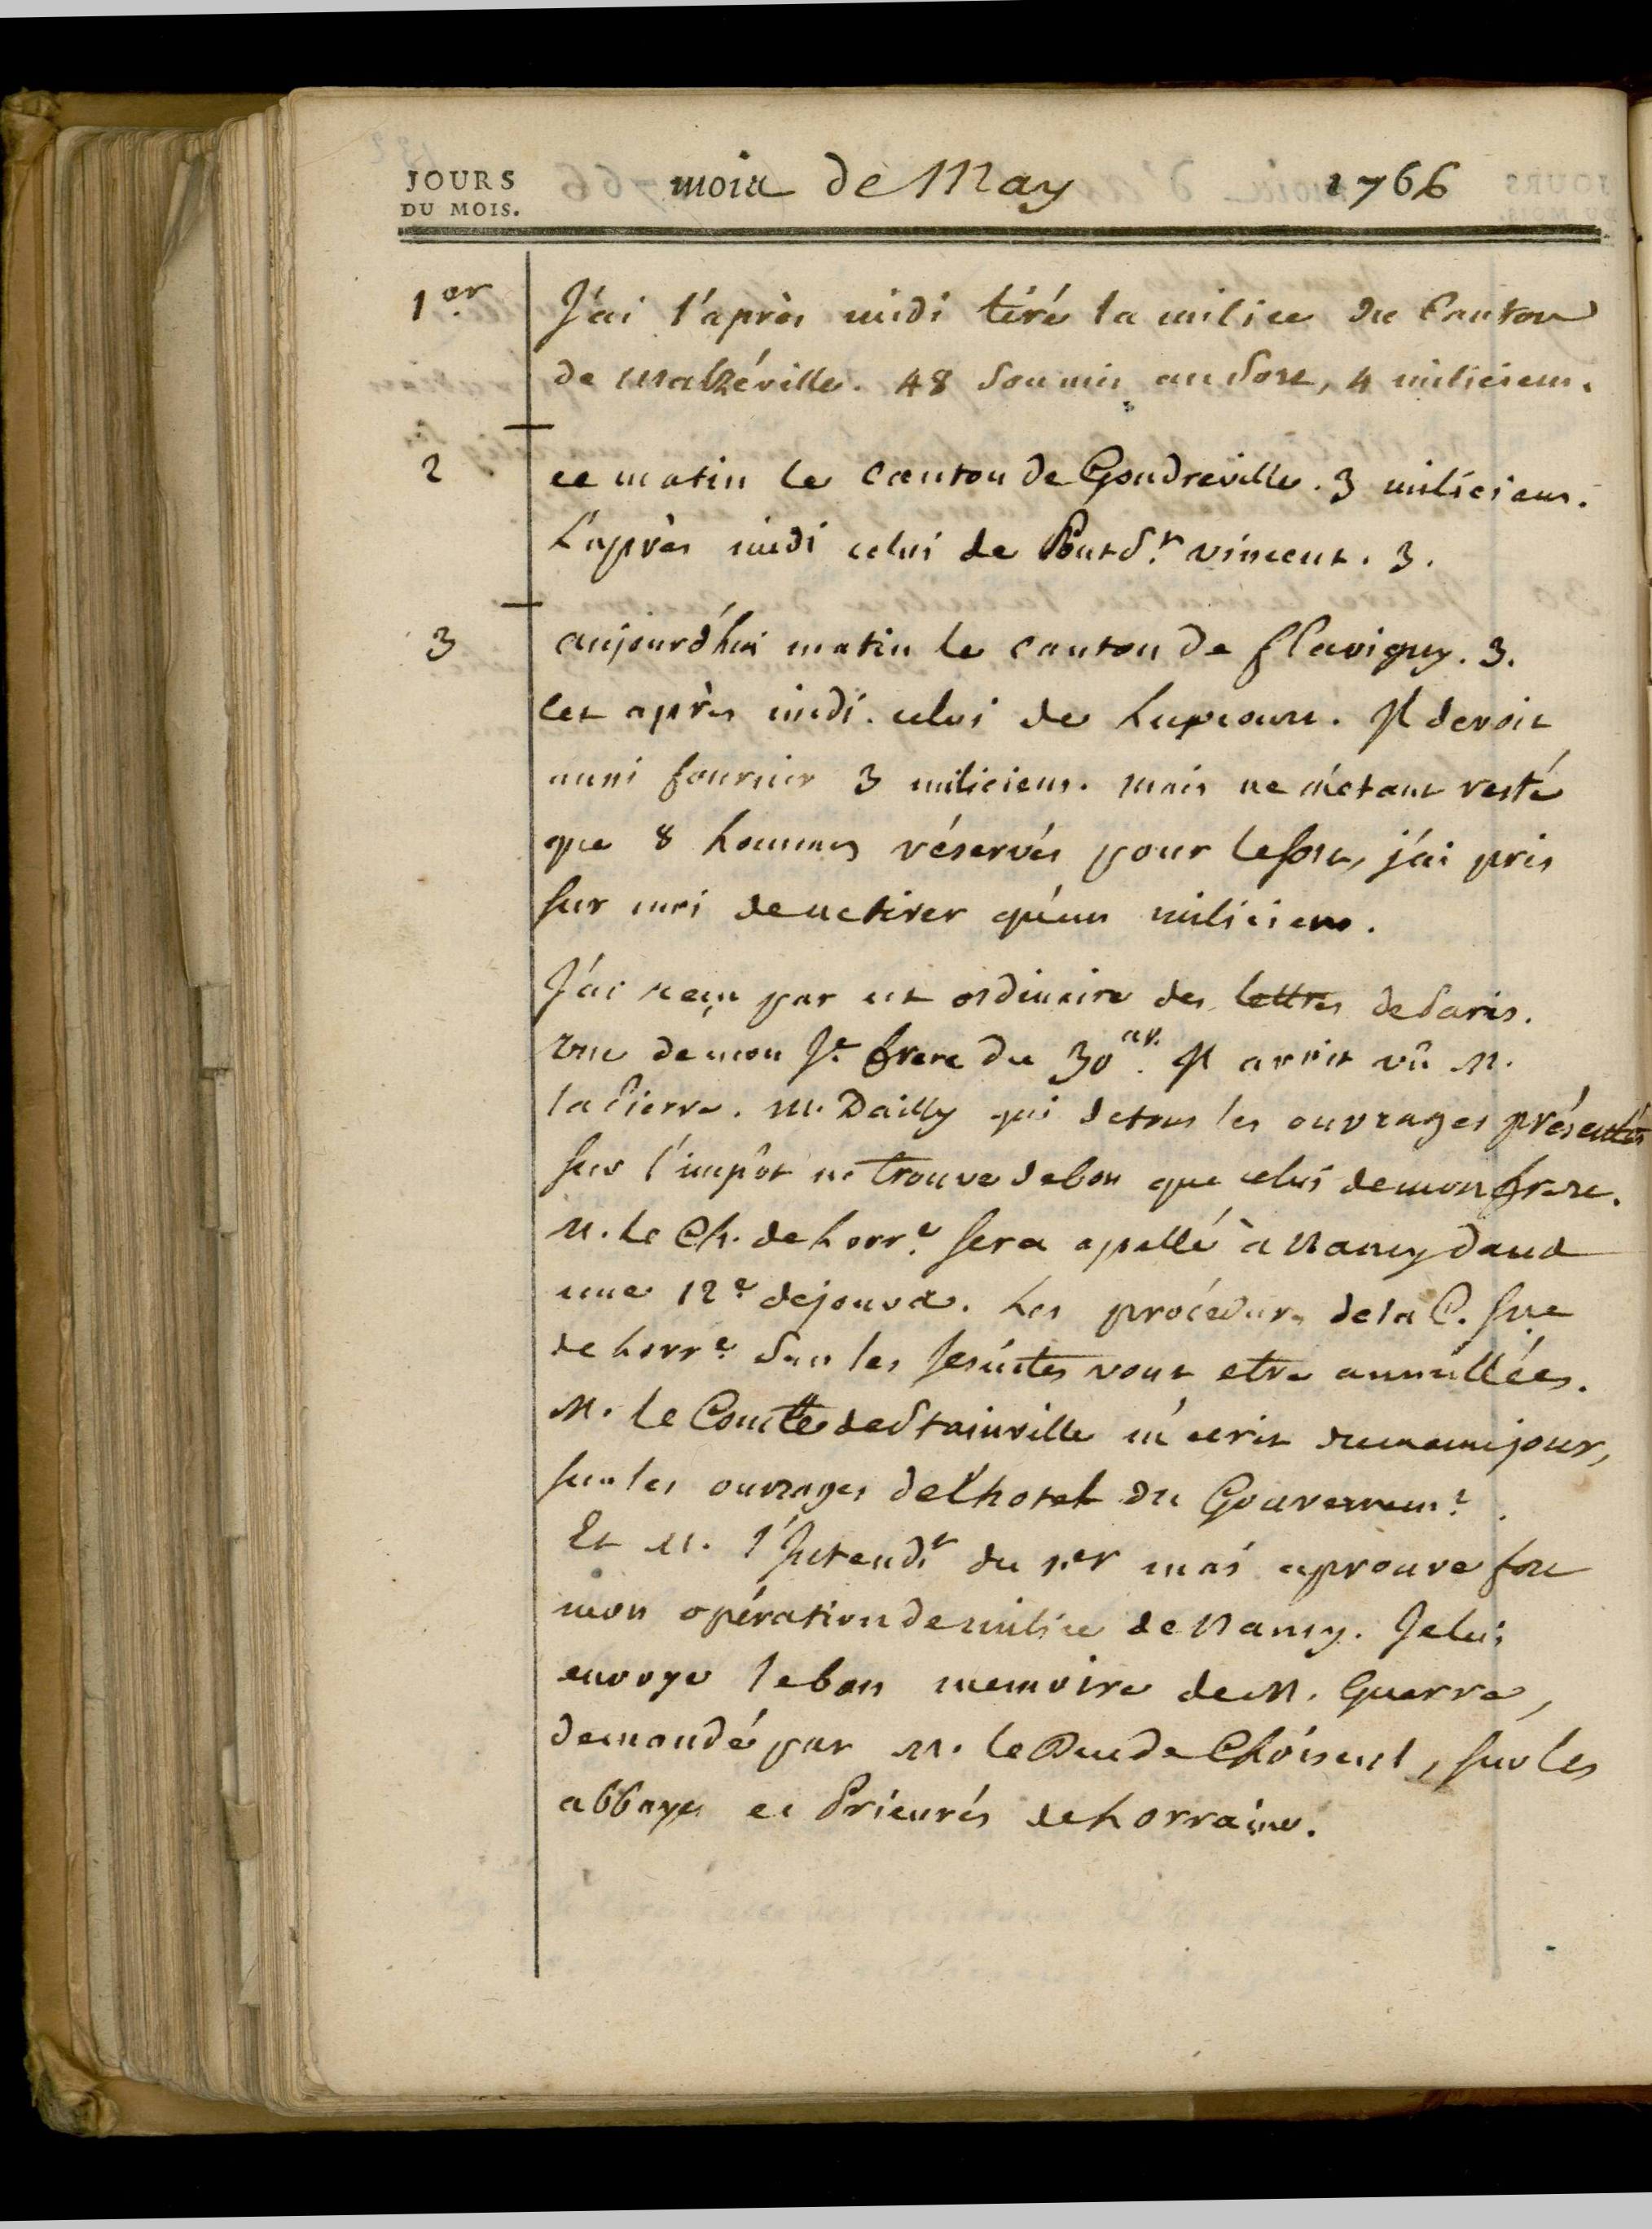 JOURS
DU MOIS.
mois de May 1766
1er J'ai l'après midi tiré la milice du Canton
de Malzéville. 48 soumis au sort, 4 miliciens.
2 ce matin le canton de Gondreville. 3 miliciens.
L'après midi celui de Pont St. vincent. 3.
3 aujourd'hui matin le canton de flavigny. 3.
cet après midi. celui de Lupcourt. Il devoit
aussi fournir 3 miliciens. mais ne m'étant resté
que 8 hommes réservés pour le sort, j'ai pris
sur moi de ne tirer qu'un milicien.
J'ai reçu par cet ordinaire des lettres de Paris.
Une de mon Je. frere du 30 av. Il avoit vû M.
la Pierre. M. Dailly qui de tous les ouvrages présentés
sur l'impôt ne trouve de bon que celui de mon frere.
M. le Ch. de Lorr.e sera apellé à Nancy dans
une 12.e de jours. Les procédures de la C. Sne
de Lorr.e sur les Jesuites vont etre annullées.
M. le Comte de Stainville m'ecrit du meme jour,
sur les ouvrages de l'hotel du Gouvernemt.
Et M. l'Intendt du 1.er mai aprouve fort
mon opération de milice de Nancy. Je lui
envoye le bon memoire de M. Guerre,
demandé par M. le Duc de Choiseul, sur les
abbayes et Prieurés de Lorraine.